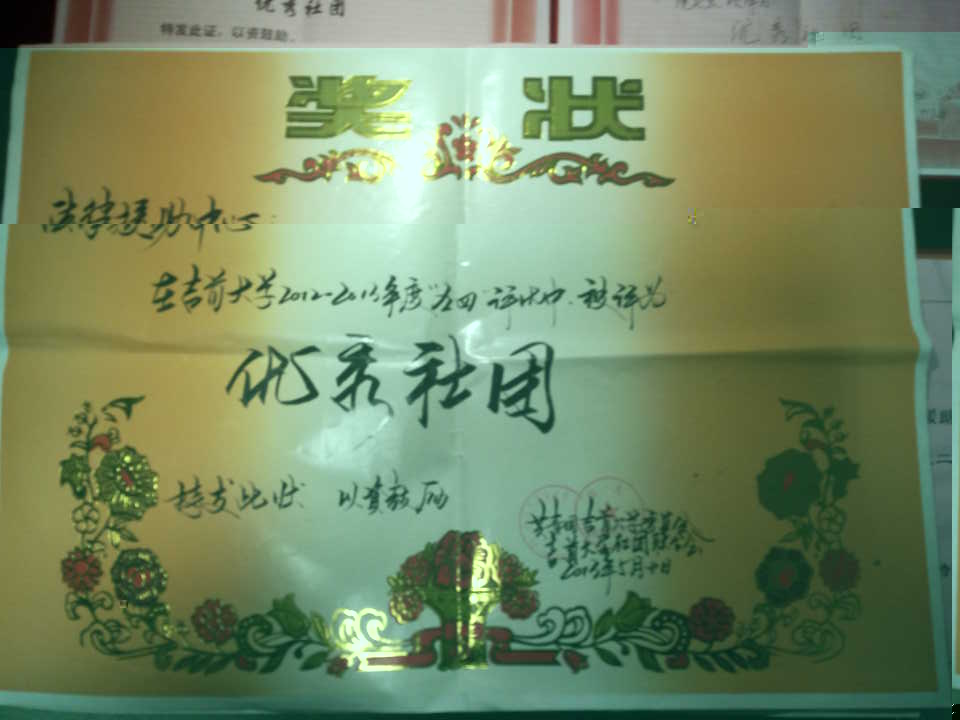 优秀社团
特发此证，以资鼓励。
优秀社团
奖状
法律援助中心：
在吉首大学2012-2013年度"五四"评比中，被评为
优秀社团
特发此状 以资鼓励
共青团吉首大学委员会
吉首大学社团联合会
2013年5月十日
援助